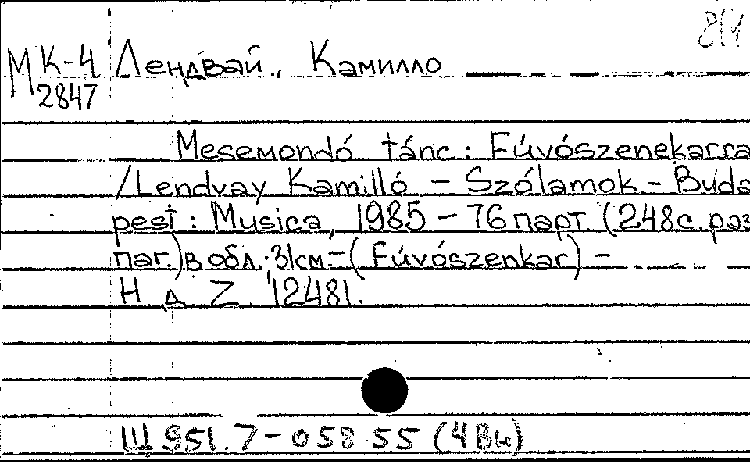 8/1
МК-4 Лендвай, Камилло
2847
Mesemondó tánc : Fúvószenekarra
/Lendvay Kamilló - Szólamok - Buda
pest : Musica, 1985 - 76 парт (248с. раз
паг.) в обл.; 31см - (Fúvószenkar) -
Н д Z 12481.
Щ 951.7-058 55 (4Ви)